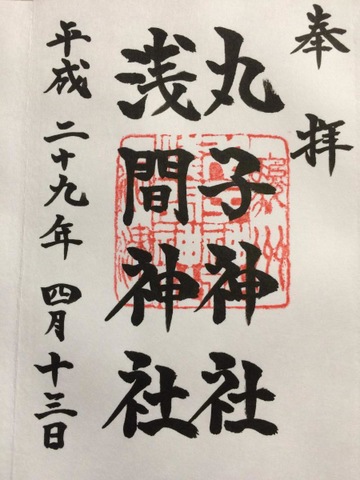 奉拝
丸子神社
浅間神社
平成二十九年四月十三日